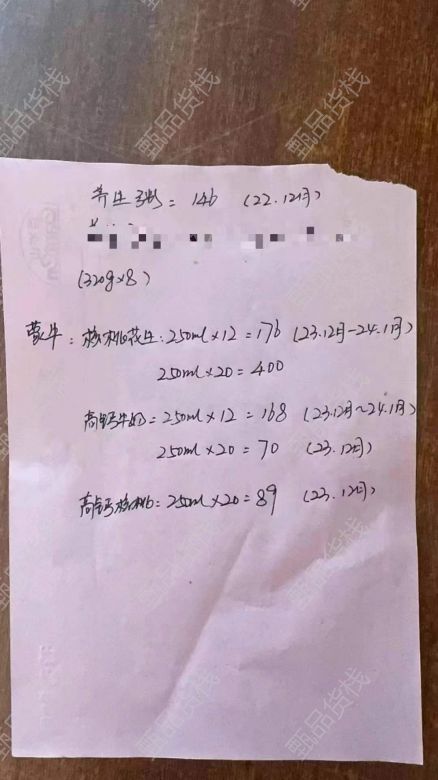 养生粥= 146 (22.12月)
(320g×8)
蒙牛: 核桃花生: 250ml×12=176 (23.12月-24.1月)
250ml×20=400
高钙牛奶=250ml×12=168 (23.12月~24.1月)
250ml×20=70 (23.12月)
高钙核桃: 250ml×20=89 (23.12月)
甄品货栈